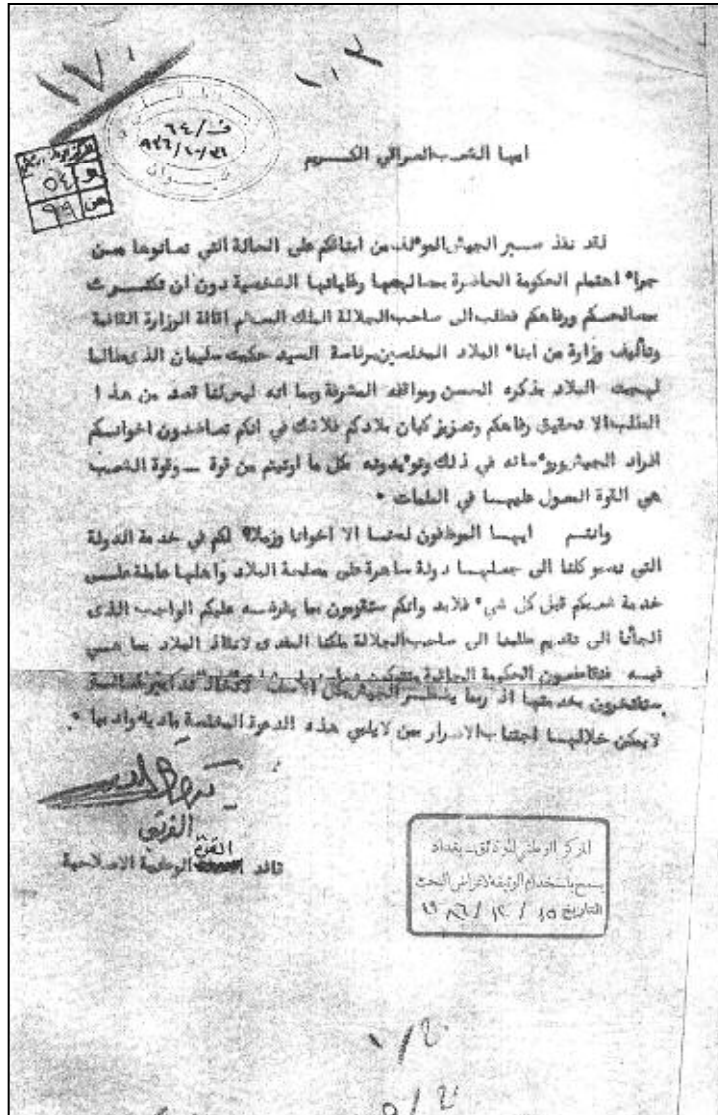 ١٧٠
١٠٢
ف/٦٤
ديوان
و ٥٤
ص ٩٩
ايها الشعب العراقي الكريم
لقد نفذ صبر الجيش المؤلف من ابنائكم على الحالة التي تعانوها من
جراء اهتمام الحكومة الحاضرة بمصالحها وغاياتها الشخصية دون ان تكترث
بمصالحكم ورفاهكم فطلب الى صاحب الجلالة الملك المعظم اقالة الوزارة القائمة
وتأليف وزارة من ابناء البلاد المخلصين برئاسة السيد حكمت سليمان الذي طالما
لهجت البلاد بذكره الحسن ومواقفه المشرفة وبما انه ليس لنا قصد من هذا
الطلب الا تحقيق رفاهكم وتعزيز كيان بلادكم فلا شك في انكم تعاضدون اخوانكم
افراد الجيش ورؤسائه في ذلك وتؤيدونه بكل ما اوتيتم من قوة ــ وقوة الشعب
هي القوة المعول عليها في الملمات ٠
وانتم ايها الموظفون لسنا الا اخوانا وزملاء لكم في خدمة الدولة
التي نصبو كلنا الى جعلها دولة ساهرة على مصلحة البلاد واهلها عاملة على
خدمة شعبكم قبل كل شيء فلابد وانكم ستقومون بما يفرضه عليكم الواجب الذى
الجأنا الى تقديم طلبنا الى صاحب الجلالة ملكنا المفدى لانقاذ البلاد مما هي
فيه فتقاطعون الحكومة الجائرة وتتركون
ستفتخرون بخدمتها اذ ربما يضطر الجيش بكل الاسف لاتخاذ تدابير فعالة
لا يمكن خلالها اجتناب الاضرار بمن لا يلبي هذه الدعوة المخلصة ماديا وادبيا ٠
الفريق
قائد القوة الوطنية الاصلاحية
المركز الوطني للوثائق ــ بغداد
يسمح باستخدام الوثيقة لاغراض البحث
التاريخ ١٥ / ١٢ /